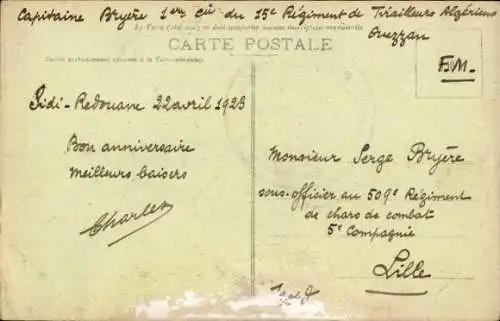 Capitaine Bryère 1ère Cie du 15e Régiment de Tirailleurs Algériens
Ouezzan
CARTE POSTALE
F.M.
Sidi-Redouane 22 avril 1923
Bon anniversaire
Meilleurs baisers
Charles
Monsieur Serge Bryère
sous-officier au 509e Régiment
de chars de combat
5e Compagnie
Lille